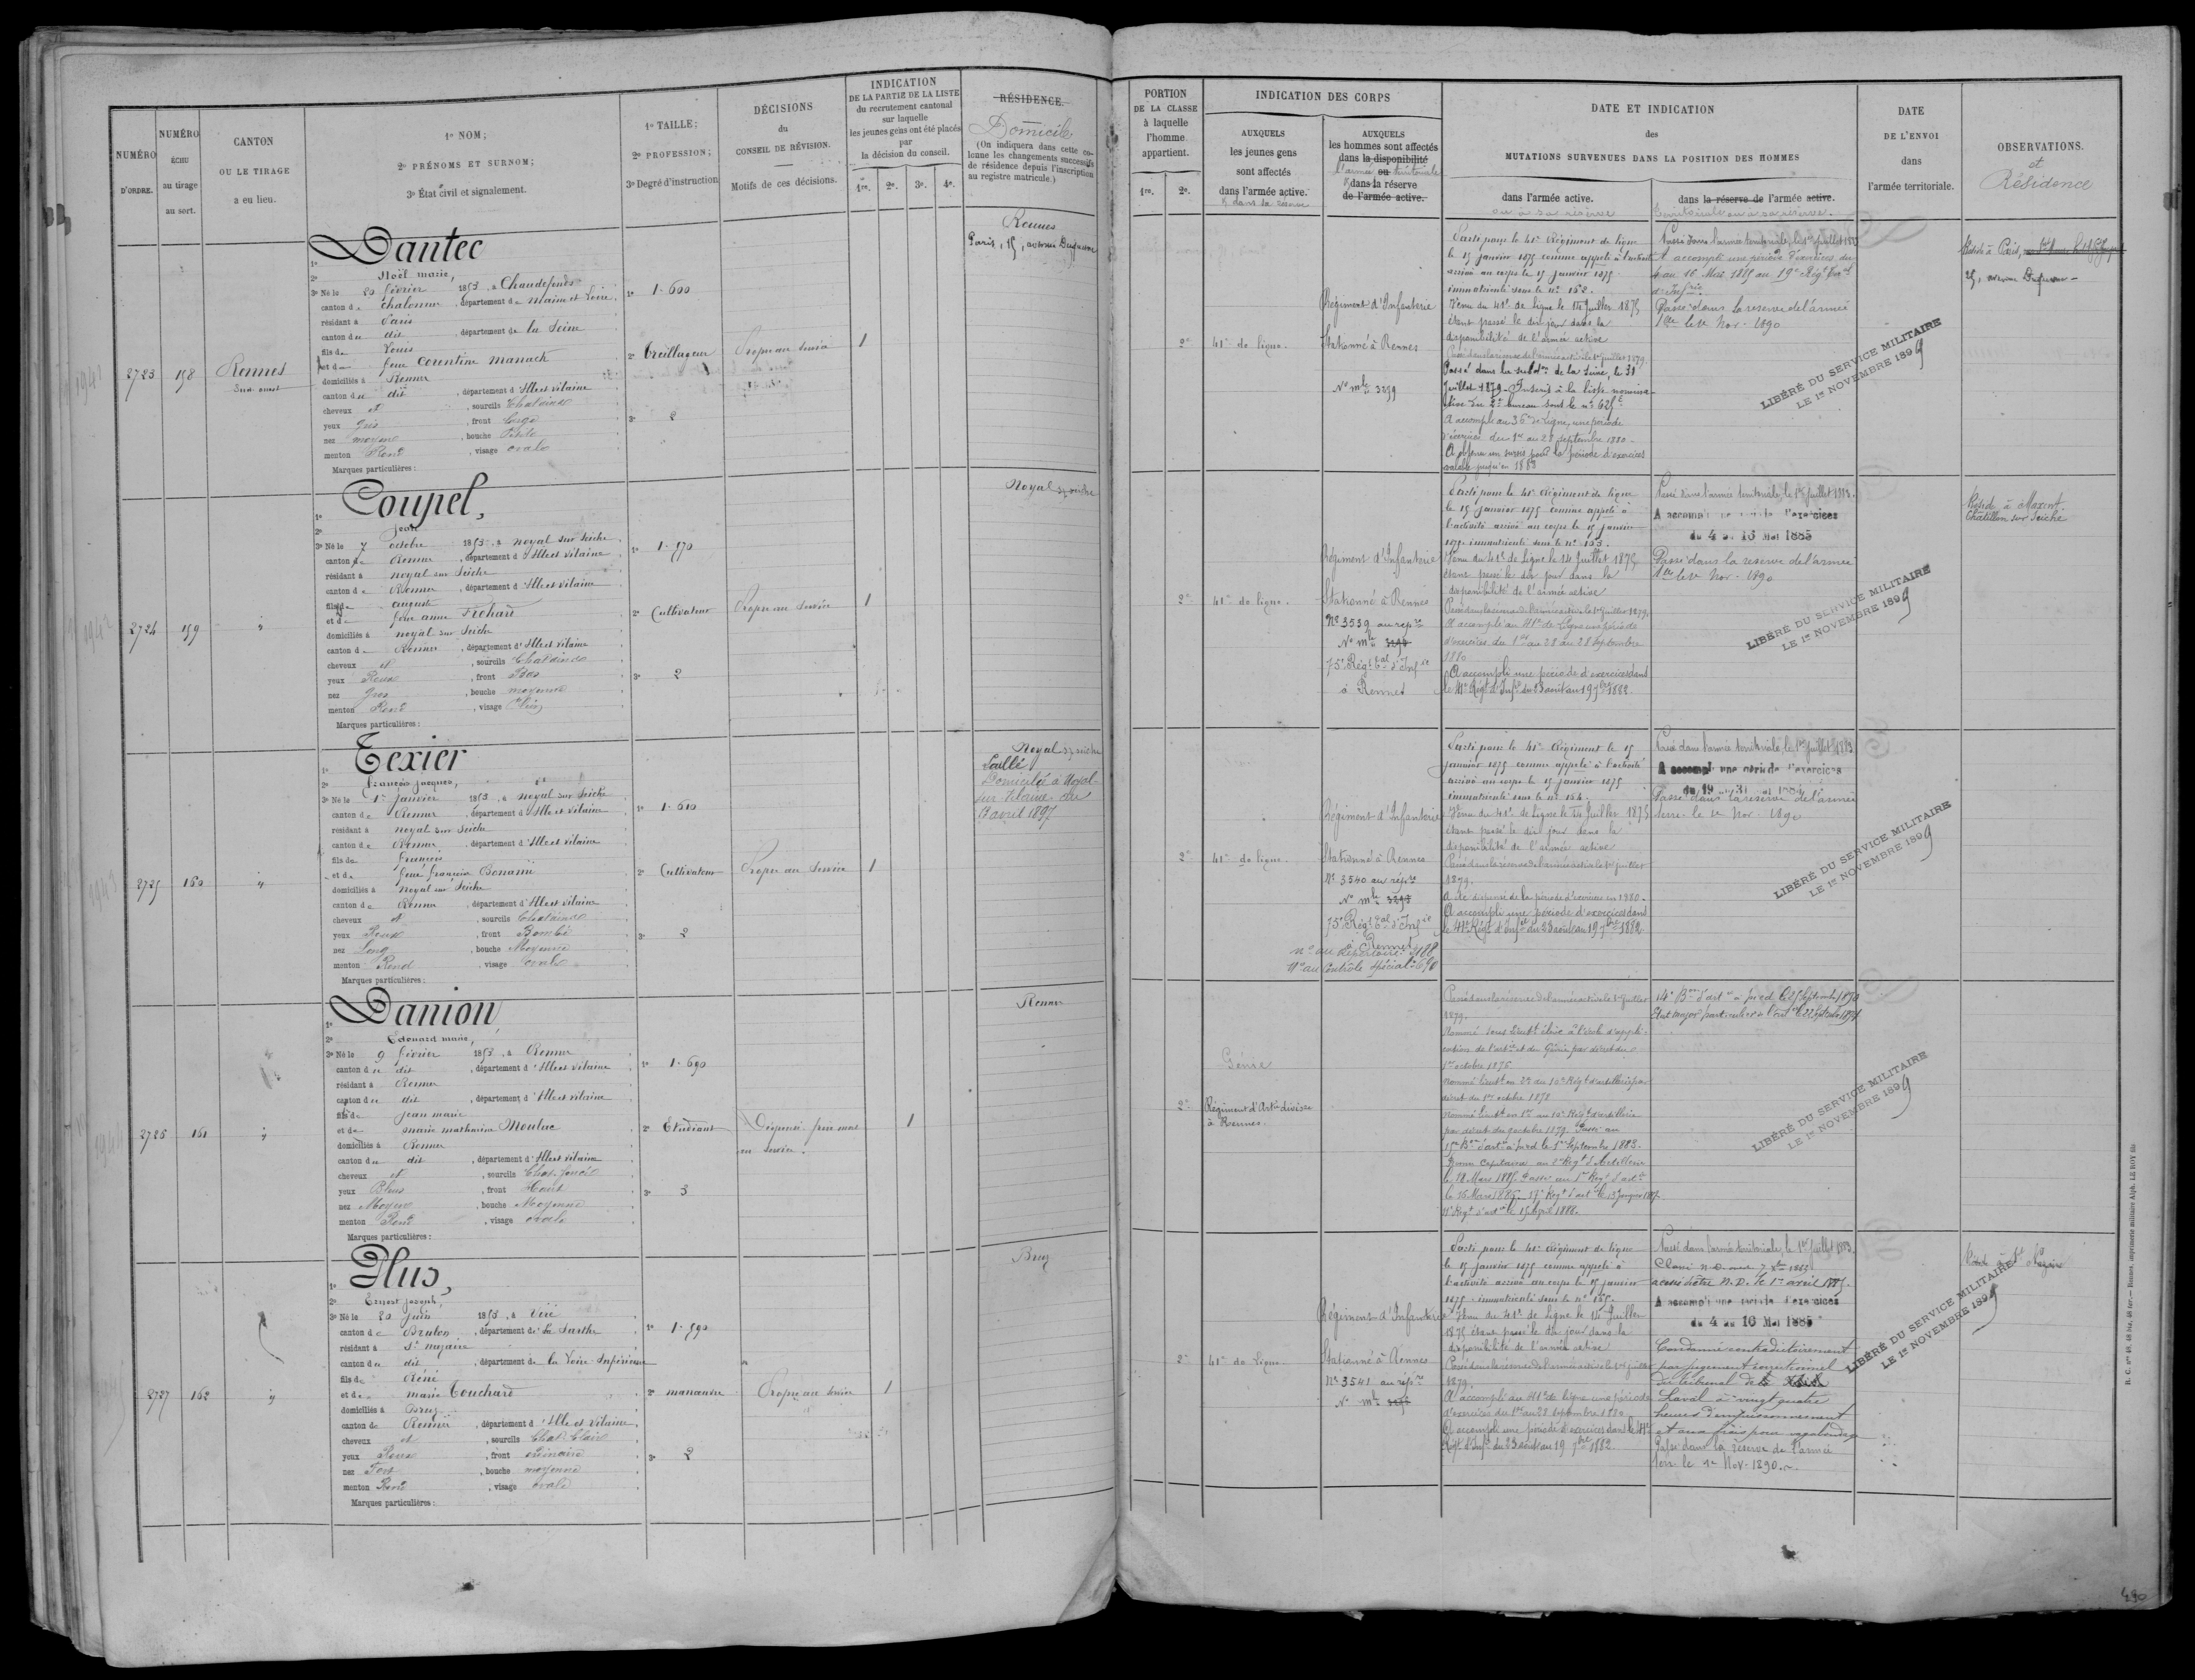 NUMÉRO D'ORDRE.
NUMÉRO ÉCHU au tirage au sort.
CANTON OU LE TIRAGE a eu lieu.
1º NOM;
2º PRÉNOMS ET SURNOM;
3º État civil et signalement.
1º TAILLE;
2º PROFESSION;
3º Degré d'instruction
DÉCISIONS
du
CONSEIL DE RÉVISION.
Motifs de ces décisions.
INDICATION
DE LA PARTIE DE LA LISTE
du recrutement cantonal
sur laquelle
les jeunes gens ont été placés
par
la décision du conseil.
1re. 2e. 3e. 4e.
RÉSIDENCE.
Domicile
(On indiquera dans cette co-
lonne les changements successifs
de résidence depuis l'inscription
au registre matricule.)
2723
158
Rennes
Sud-ouest
1º Dantec
2º Noël marie,
3º Né le 20 février 1853, à Chaudefonds
canton de Chalonnes, département de Maine et Loire
résidant à Paris
canton du dit, département de la Seine
fils de Louis
et de feue Corentine Manach
domiciliés à Rennes
canton du dit, département d'Ille et Vilaine
cheveux et, sourcils Chatains
yeux Gris, front Large
nez moyen, bouche Petite
menton Rond, visage ovale
Marques particulières:
1º 1.600
2º Treillageur
3º 2
Propre au service
1
Rennes
Paris, 15, avenue Duquesne
2724
159
"
1º Coupel,
2º Jean
3º Né le 7 octobre 1853, à Noyal sur Seiche
canton de Rennes, département d'Ille et Vilaine
résidant à Noyal sur Seiche
canton de Rennes, département d'Ille et Vilaine
fils de auguste
et de feue anne Fréhard
domiciliés à Noyal sur Seiche
canton de Rennes, département d'Ille et Vilaine
cheveux et, sourcils Chatains
yeux Roux, front Bas
nez Gros, bouche moyenne
menton Rond, visage Plein
Marques particulières:
1º 1.570
2º Cultivateur
3º 2
Propre au service
1
Noyal s/ seiche
2725
160
"
1º Texier
2º François Jacques,
3º Né le 1er janvier 1853, à Noyal sur Seiche
canton de Rennes, département d'Ille et Vilaine
résidant à Noyal sur Seiche
canton de Rennes, département d'Ille et Vilaine
fils de François
et de feue Françoise Bonamie
domiciliés à Noyal sur Seiche
canton de Rennes, département d'Ille et Vilaine
cheveux et, sourcils Chatains
yeux Roux, front Bombé
nez Long, bouche Moyenne
menton Rond, visage ovale
Marques particulières:
1º 1.610
2º Cultivateur
3º 2
Propre au Service
1
Noyal s/ seiche
Laillé
Domicilié à Noyal-
sur Vilaine du
17 avril 1897
2726
161
"
1º Danion,
2º Edouard marie,
3º Né le 9 février 1853, à Rennes
canton du dit, département d'Ille et Vilaine
résidant à Rennes
canton du dit, département d'Ille et Vilaine
fils de Jean marie
et de marie mathurine Moulac
domiciliés à Rennes
canton du dit, département d'Ille et Vilaine
cheveux et, sourcils Chat. foncés
yeux Bleus, front Haut
nez Moyen, bouche Moyenne
menton Rond, visage ovale
Marques particulières:
1º 1.690
2º Etudiant
3º 3
Dispensé frère mort
en service.
1
Rennes
2727
162
"
1º Plus,
2º Ernest Joseph,
3º Né le 20 juin 1853, à Viré
canton de Brulon, département de la Sarthe
résidant à St Nazaire
canton du dit, département de la Loire Inférieure
fils de René
et de marie Touchard
domiciliés à Bruz
canton de Rennes, département d'Ille et Vilaine
cheveux et, sourcils Chat. Clair
yeux Roux, front ordinaire
nez Fort, bouche moyenne
menton Rond, visage ovale
Marques particulières:
1º 1.590
2º manœuvre
3º 2
Propre au service
1
Bruz
PORTION
DE LA CLASSE
à laquelle
l'homme
appartient.
1re. 2e.
INDICATION DES CORPS
AUXQUELS
les jeunes gens
sont affectés
dans l'armée active.
& dans sa réserve
AUXQUELS
les hommes sont affectés
dans la disponibilité
l'armée ou territoriale
& dans la réserve
de l'armée active.
DATE ET INDICATION
des
MUTATIONS SURVENUES DANS LA POSITION DES HOMMES
dans l'armée active.
ou à sa réserve
dans la réserve de l'armée active.
territoriale ou à sa réserve.
DATE
DE L'ENVOI
dans
l'armée territoriale.
OBSERVATIONS.
et
Résidence
2e
41e de ligne.
Régiment d'Infanterie
Stationné à Rennes
No mle 3239
Parti pour le 41e Régiment de ligne
le 15 janvier 1875 comme appelé à l'activité
arrivé au corps le 15 janvier 1875.
immatriculé sous le no 152.
Venu du 41e de Ligne le 14 Juillet 1875
étant passé le dit jour dans la
disponibilité de l'armée active
Passé dans la réserve de l'armée active le 1er juillet 1879.
Passé dans la subdon de la Seine, le 31
Juillet 1879. Inscrit à la liste nomina-
tive du 2e bureau sous le no 625
A accompli au 36e de Ligne, une période
d'exercices du 1er au 28 septembre 1880.
A obtenu un sursis pour la période d'exercices
valable jusqu'en 1883
Passé dans l'armée territoriale, le 1er juillet 1883
A accompli une période d'exercices du
4 au 16 Mai 1885 au 19e Régt terral
d'Infrie.
Passé dans la réserve de l'armée
terr le 1er Nov. 1890
LIBÉRÉ DU SERVICE MILITAIRE
LE 1er NOVEMBRE 1899
Réside à Paris,
25, avenue Duquesne
2e
41e de ligne.
Régiment d'Infanterie
Stationné à Rennes
No 3539 au répre
No mle
75e Régt tal d'Infie
à Rennes
Parti pour le 41e Régiment de ligne
le 15 janvier 1875 comme appelé à
l'activité arrivé au corps le 15 janvier
1875 immatriculé sous le no 153.
Venu du 41e de Ligne le 14 Juillet 1875
étant passé le dit jour dans la
disponibilité de l'armée active
Passé dans la réserve de l'armée active le 1er juillet 1879.
A accompli au 41e de Ligne une période
d'exercices du 1er au 28 au 28 Septembre
1880
A accompli une période d'exercices dans
le 41e Régt d'Infie du 23 août au 19 7bre 1882
Passé dans l'armée territoriale, le 1er juillet 1883.
A accompli une période d'exercices
du 4 au 16 Mai 1885
Passé dans la réserve de l'armée
terr le 1er Nov. 1890
LIBÉRÉ DU SERVICE MILITAIRE
LE 1er NOVEMBRE 1899
Réside à Maxent.
Chatillon sur Seiche
2e
41e de ligne.
Régiment d'Infanterie
Stationné à Rennes
No 3540 au répre
No mle
75e Régt tal d'Infie
à Rennes
no au Répertoire 3188
No au Contrôle spécial 690
Parti pour le 41e Régiment le 15
janvier 1875 comme appelé à l'activité
arrivé au corps le 15 janvier 1875
immatriculé sous le no 154.
Venu du 41e de Ligne le 14 Juillet 1875
étant passé le dit jour dans la
disponibilité de l'armée active
Passé dans la réserve de l'armée active le 1er juillet
1879.
A été dispensé de la période d'exercices en 1880.
A accompli une période d'exercices dans
le 41e Régt d'Infie du 23 août au 19 7bre 1882
Passé dans l'armée territoriale, le 1er juillet 1883
A accompli une période d'exercices
du 19 au 31 1884
Passé dans la réserve de l'armée
terre le 1er Nov. 1890
LIBÉRÉ DU SERVICE MILITAIRE
LE 1er NOVEMBRE 1899
2e
Génie
Régiment d'Artie division
à Rennes.
Passé dans la réserve de l'armée active le 1er juillet
1879.
Nommé sous Lieutt élève à l'école d'appli-
cation de l'artie et du Génie par décret du
1er octobre 1876
Nommé lieutt en 2e au 10e Régt d'artillerie par
décret du 1er octobre 1878
Nommé lieutt en 1er au 10e Régt d'artillerie
par décret du octobre 1879. Passé au
15e Bon d'artie à pied le 1er Septembre 1883.
Promu Capitaine au Régt d'Artillerie
le 18 Mars 1885. Passé au 1er Régt d'artie
le 16 Mars 1886. 17e Régt d'artie le 13 janvier 1887.
11e Régt d'artie le 15 avril 1888.
14e Bon d'artie à pied le 25 Septembre 1890
Etat major particulier de l'artie le 22 Septembre 1894
LIBÉRÉ DU SERVICE MILITAIRE
LE 1er NOVEMBRE 1899
2e
41e de ligne.
Régiment d'Infanterie
Stationné à Rennes
No 3541 au répre
No mle
Parti pour le 41e Régiment de ligne
le 15 janvier 1875 comme appelé à
l'activité arrivé au corps le 15 janvier
1875 immatriculé sous le no 155.
Venu du 41e de Ligne le 14 Juillet
1875 étant passé le dit jour dans la
disponibilité de l'armée active
Passé dans la réserve de l'armée active le 1er juillet
1879.
A accompli au 41e de Ligne une période
d'exercices du 1er au 28 septembre 1880
A accompli une période d'exercices dans le 41e
Régt d'Infie du 23 août au 19 7bre 1882.
Passé dans l'armée territoriale, le 1er juillet 1883.
Classé N.D.
a cessé d'être N.D. le 1er avril 1885.
A accompli une période d'exercices
du 4 au 16 Mai 1885
Condamné contradictoirement
par jugement correctionnel
du tribunal de
Laval à vingt quatre
heures d'emprisonnement
et aux frais pour vagabondage
Passé dans la réserve de l'armée
terr le 1er Nov. 1890.
LIBÉRÉ DU SERVICE MILITAIRE
LE 1er NOVEMBRE 1899
Réside à St Nazaire
R. C. nos 48, 48 bis, 48 ter.— Rennes, imprimerie militaire Alph. LE ROY fils
490